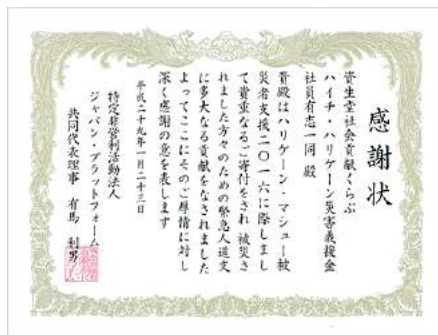 感謝状
資生堂社会貢献くらぶ
ハイチ・ハリケーン災害義援金
社員有志一同 殿
貴殿はハリケーン・マシュー被
災者支援二〇一六に際しまし
て貴重なご寄付をされ 被災さ
れました方々のための緊急人道支
に多大なる貢献をなされました
よってここにそのご厚情に対し
深く感謝の意を表します
平成二十九年一月二十三日
特定非営利活動法人
ジャパン・プラットフォーム
共同代表理事 有馬 利男